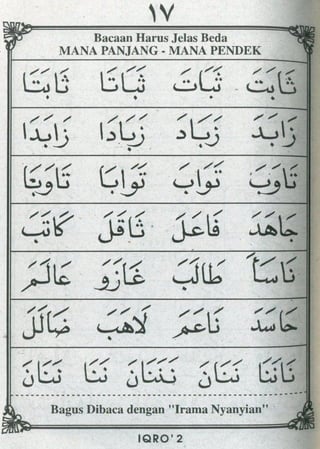 ١٧
Bacaan Harus Jelas Beda
MANA PANJANG - MANA PENDEK
ثَابَتَ ثَبَاتَ ثَبَاتَا ثَابَتَا
زَابَدَ زَبَادَ زَبَادَا زَابَدَا
تَاوَبَ تَوَابَ تَوَابَا تَاوَبَا
جَاهَدَ فَاعَلَ ثَاقَلَ كَاتَبَ
نَاسَأَ طَالَبَ غَازَوَ عَالَمَ
حَاسَدَ نَاعَمَ لَاهَبَ ضَالَلَ
نَانَنَا نَنَانَ نَنَنَانَ نَنَا نَنَانَ
Bagus Dibaca dengan "Irama Nyanyian"
IQRO' 2